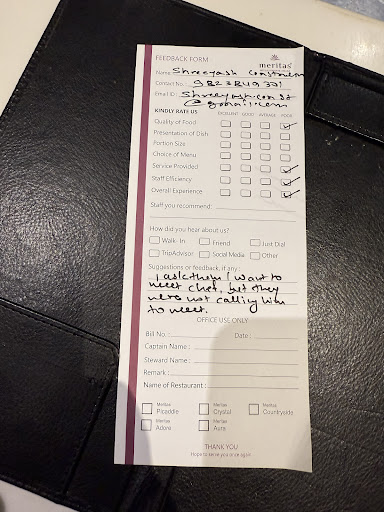 FEEDBACK FORM
meritas
Name: Shreeyash
Contact No.:
Email ID:
KINDLY RATE US EXCELLENT GOOD AVERAGE POOR
Quality of Food
Presentation of Dish
Portion Size
Choice of Menu
Service Provided
Staff Efficiency
Overall Experience
Staff you recommend:
How did you hear about us?
Walk- In Friend Just Dial
TripAdvisor Social Media Other
Suggestions or feedback, if any:
I ask them I want to
meet chef, but they
were not calling him
to meet.
OFFICE USE ONLY
Bill No.: Date:
Captain Name:
Steward Name:
Remark:
Name of Restaurant:
Meritas Meritas Meritas
Picaddle Crystal Countryside
Meritas Meritas
Adore Aura
THANK YOU
Hope to serve you once again